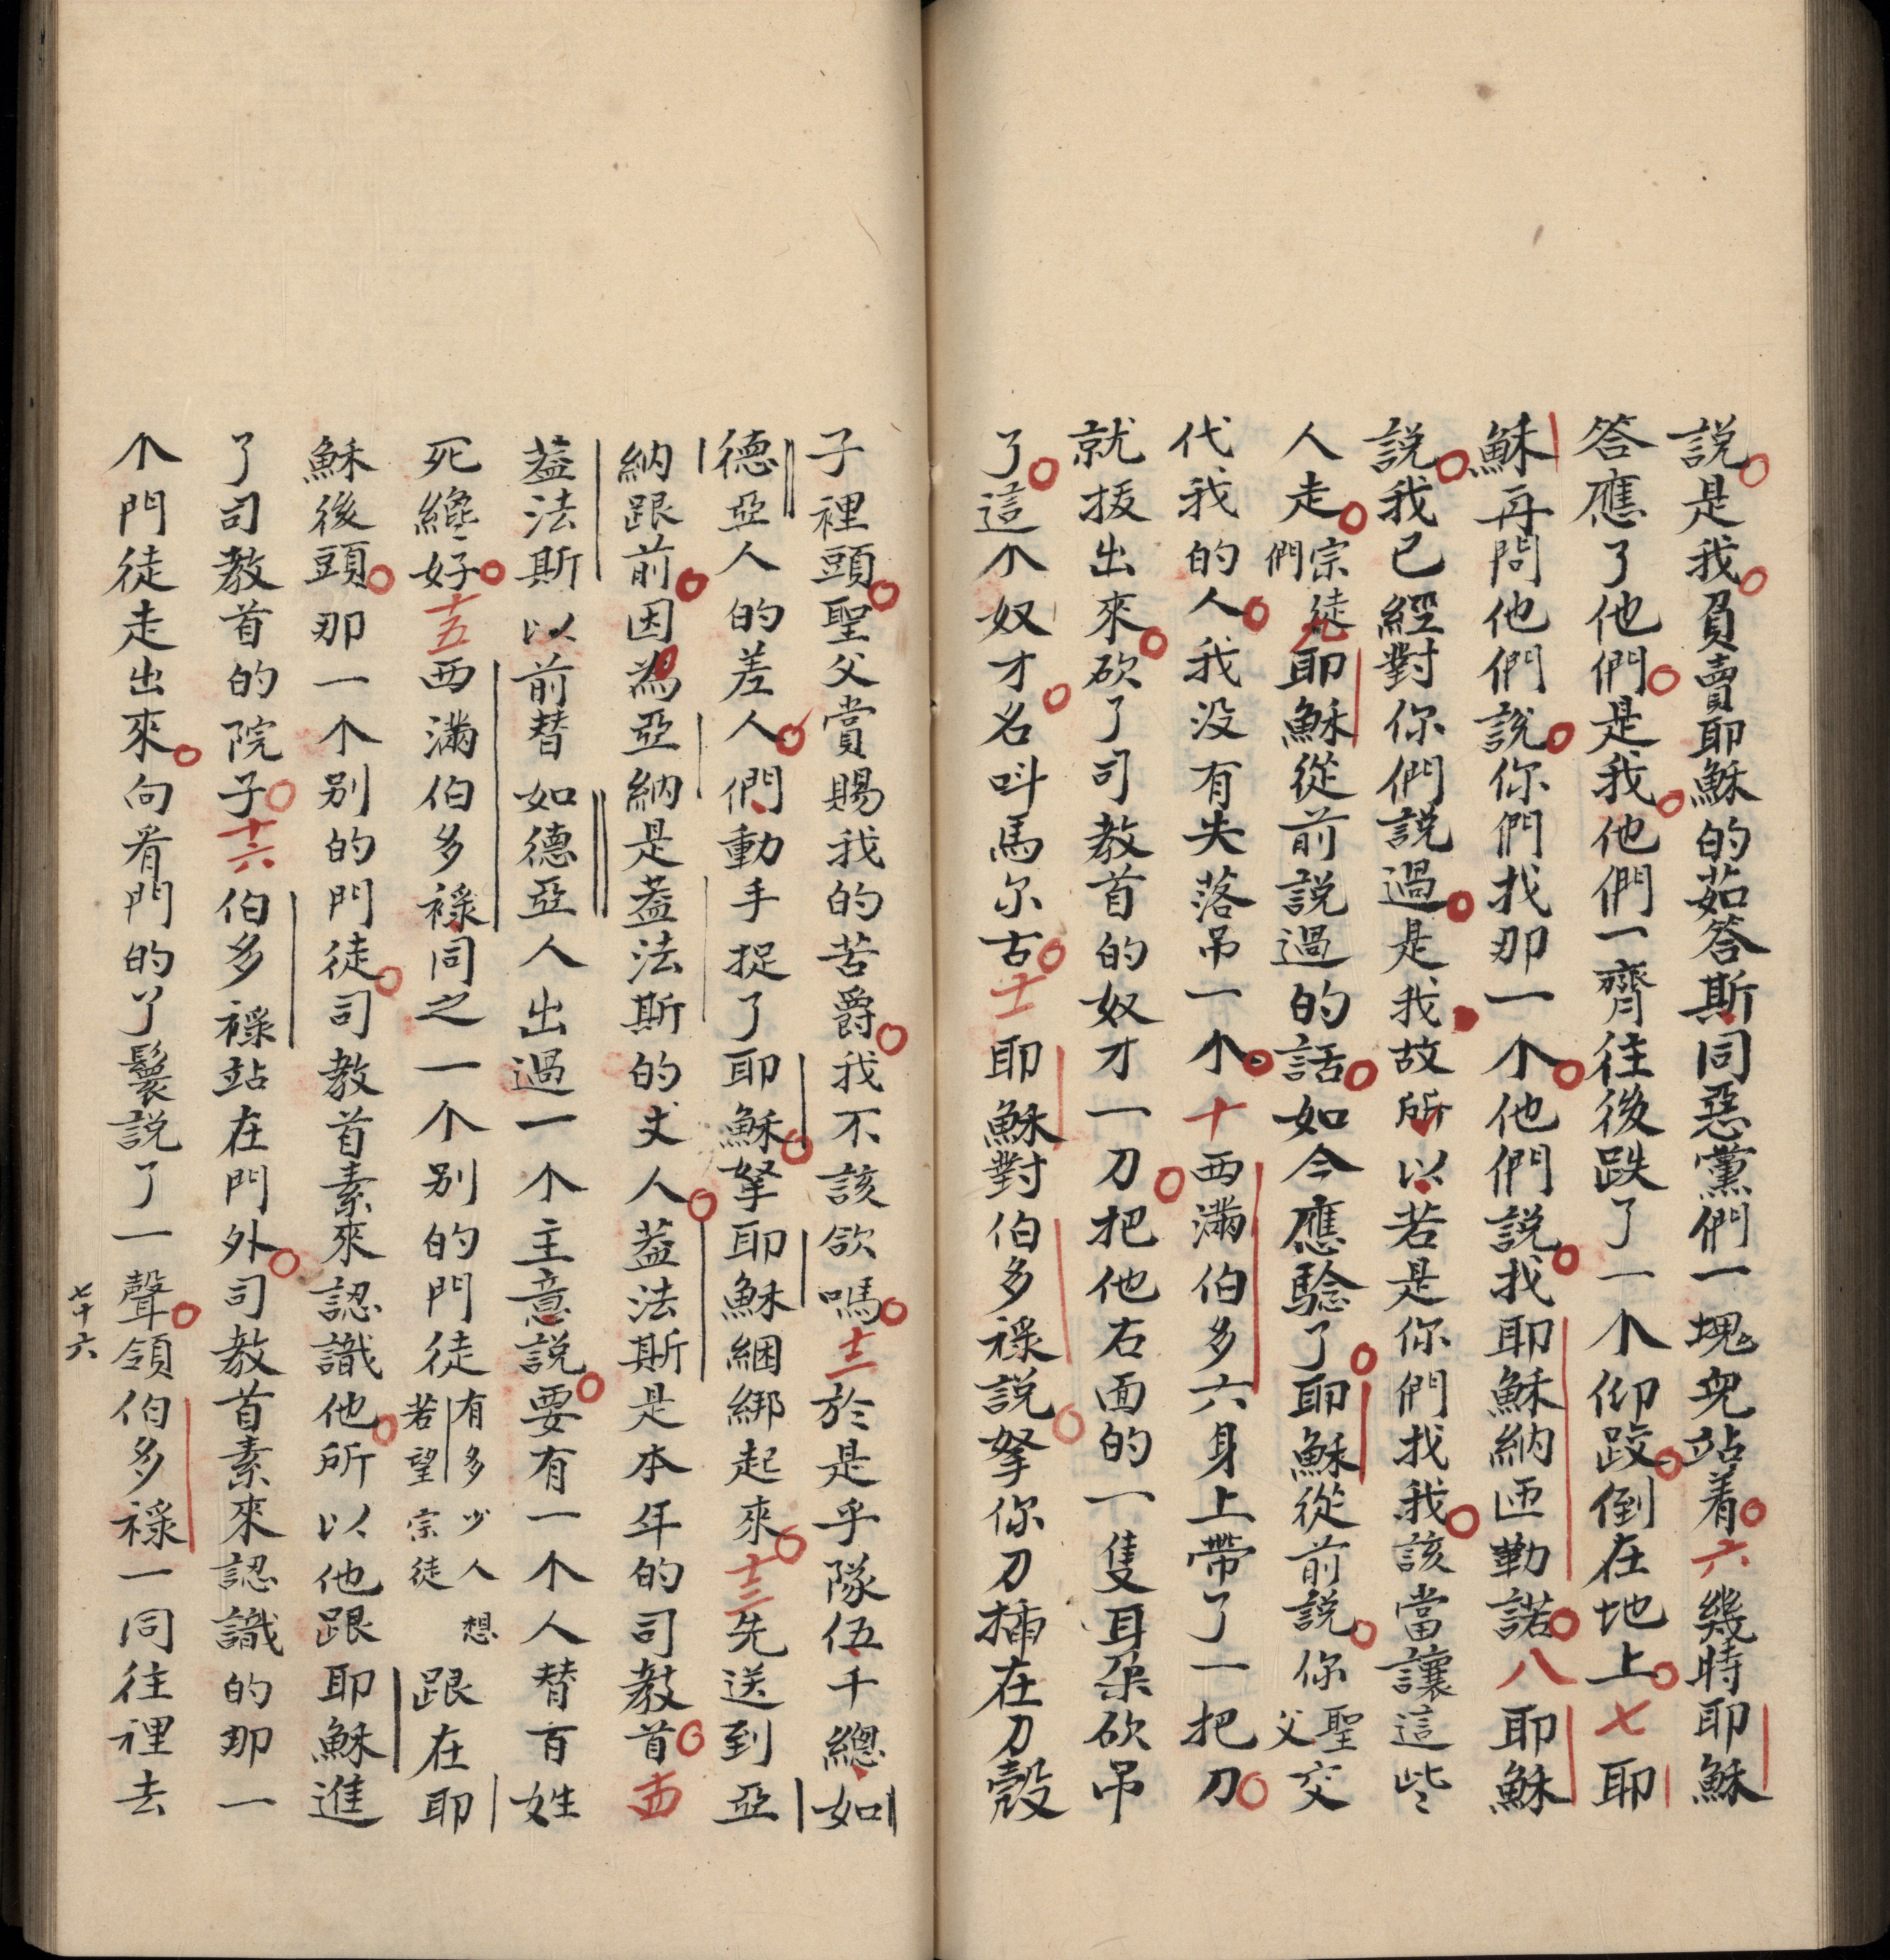 說是我負賣耶穌的茹答斯同惡黨們一塊兒站着六幾時耶穌
答應了他們是我他們一齊往後跌了一个仰跤倒在地上七耶
穌再問他們說你們找那一个他們說找耶穌納匝勒諾八耶穌
說我已經對你們說過是我故所以若是你們找我該當讓這些
人走宗徒們九耶穌從前說過的話如今應騐了耶穌從前說你聖父交
代我的人我没有失落吊一个十西滿伯多六身上帶了一把刀
就拔出來砍了司教首的奴才一刀把他右面的一隻耳朶砍吊
了這个奴才名呌馬尔古十一耶穌對伯多祿說拏你刀插在刀殼
子裡頭聖父賞賜我的苦爵我不該欲嗎十二於是乎隊伍千總如
德亞人的差人們動手捉了耶穌拏耶穌綑綁起來十三先送到亞
納跟前因為亞納是葢法斯的丈人葢法斯是本年的司教首十四
葢法斯以前替如德亞人出過一个主意說要有一个人替百姓
死纔好十五西滿伯多祿同之一个别的門徒有多少人想若望宗徒跟在耶
穌後頭那一个别的門徒司教首素來認識他所以他跟耶穌進
了司教首的院子十六伯多祿站在門外司教首素來認識的那一
个門徒走出來向看門的丫鬟說了一聲領伯多祿一同往裡去
七十六